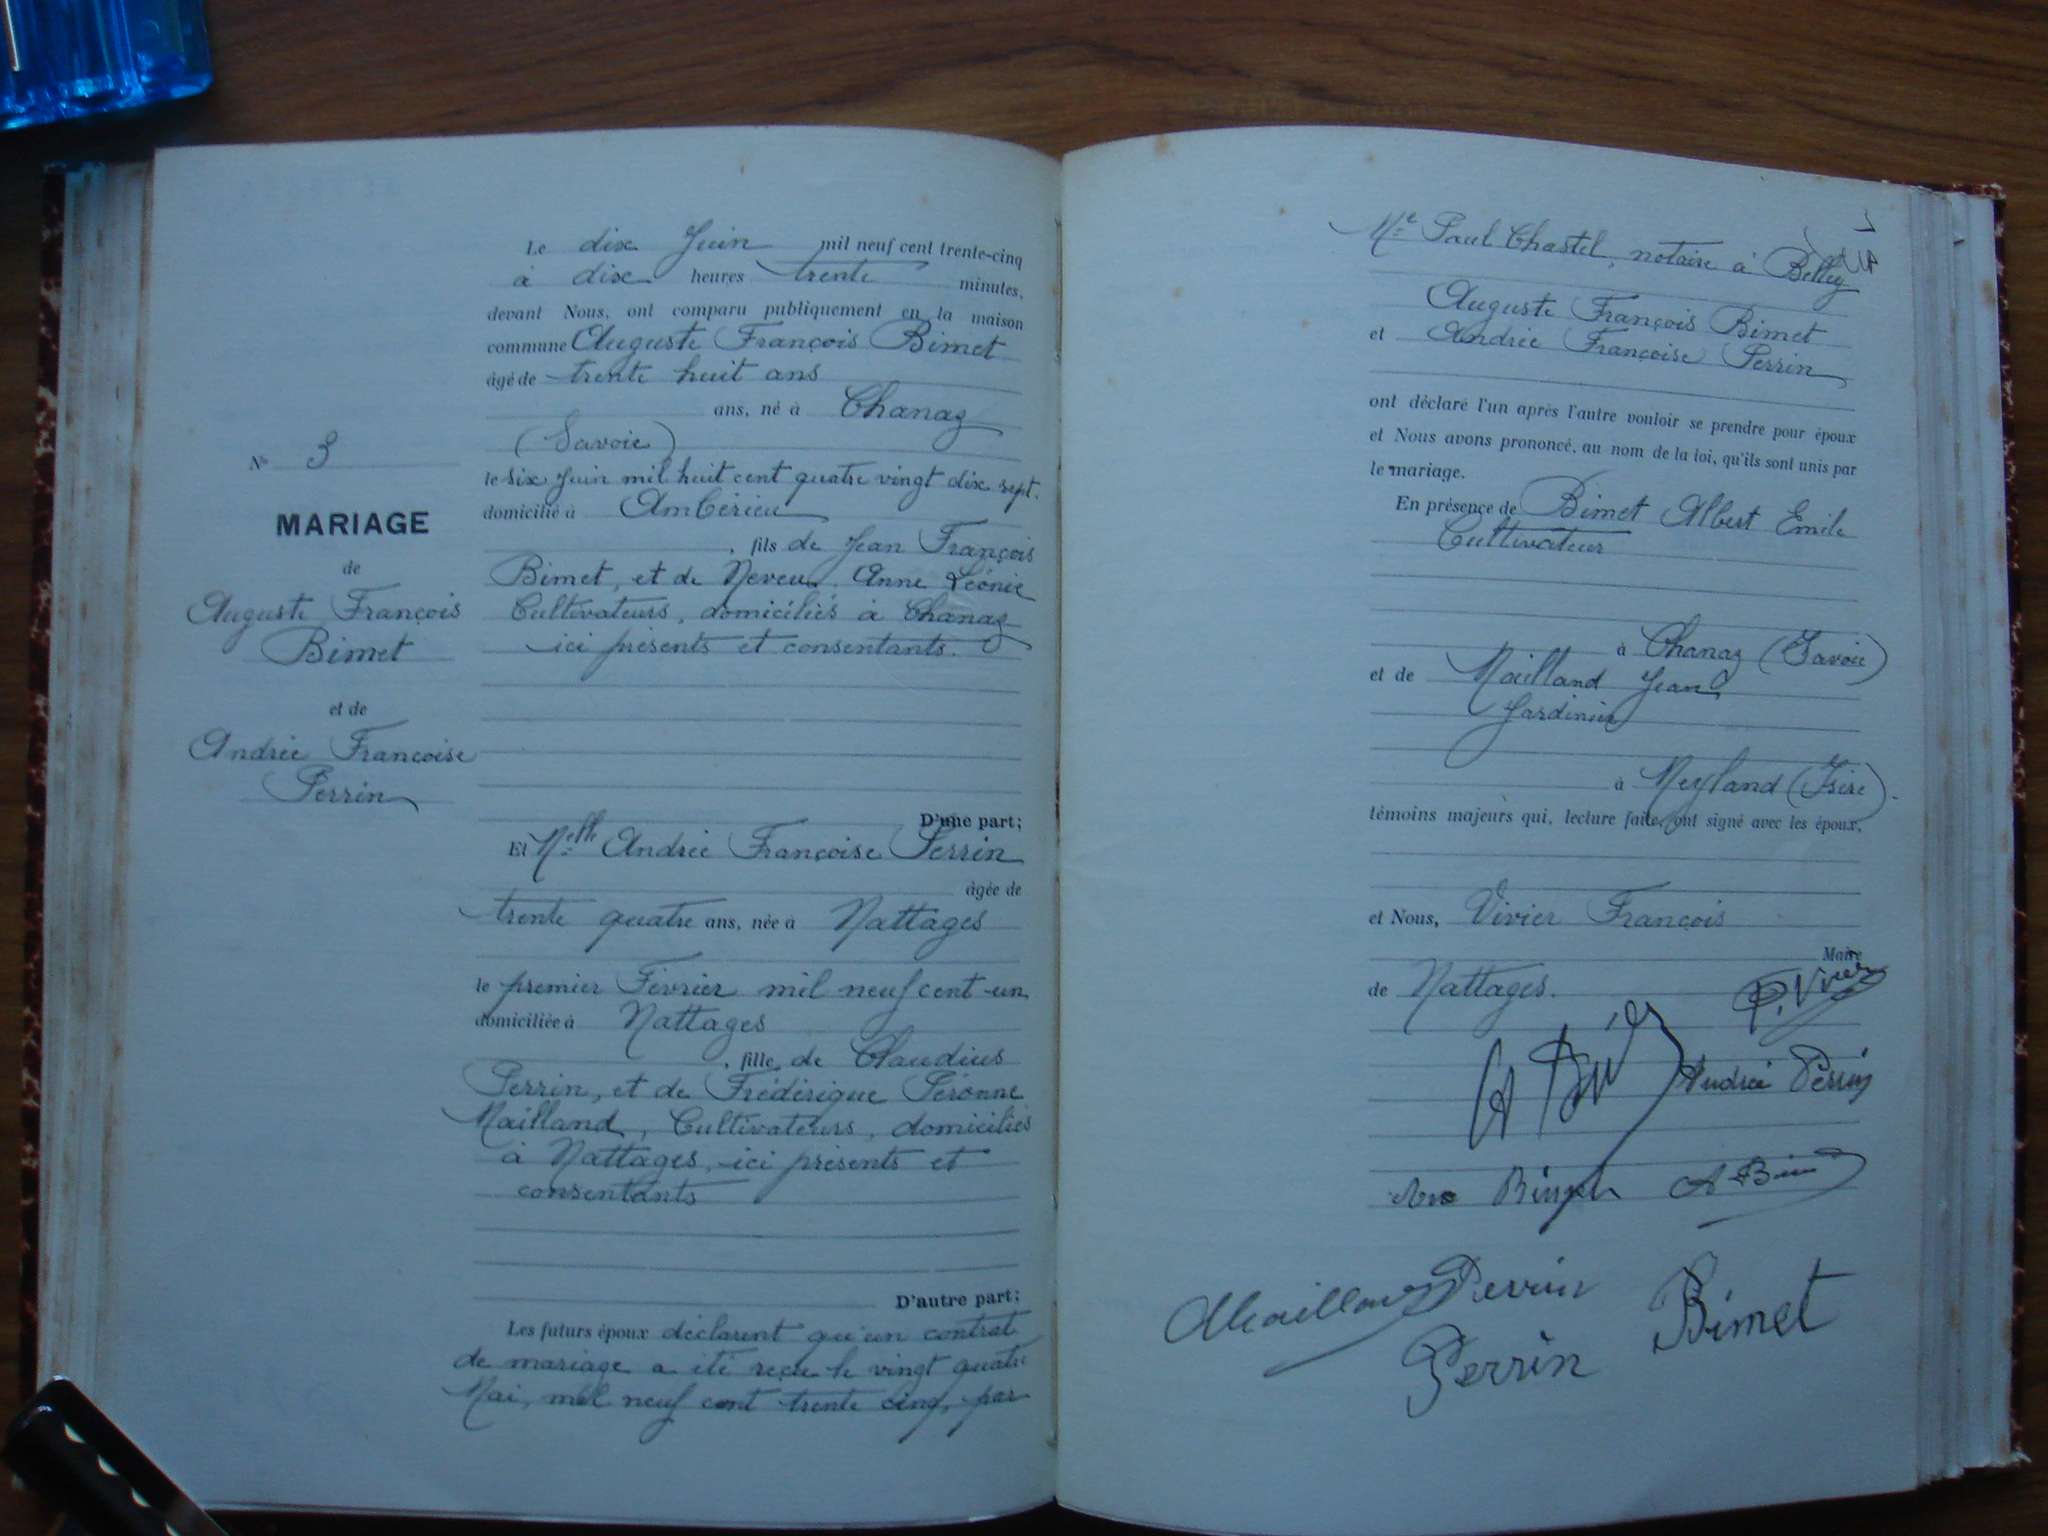 N° 3
MARIAGE
de
Auguste François
Bimet
et de
Andrée Francoise
Perrin
Le dix Juin mil neuf cent trente-cinq
à dix heures trente minutes,
devant Nous, ont comparu publiquement en la maison
commune Auguste François Bimet
âgé de trente huit ans
ans, né à Chanaz
(Savoie)
le six Juin mil huit cent quatre vingt dix sept.
domicilié à Ambérieu
, fils de Jean François
Bimet, et de Neveu. Anne Léonie
Cultivateurs, domiciliés à Chanaz
ici présents et consentants.
D'une part;
Et Melle Andrée Françoise Perrin
âgée de
trente quatre ans, née à Nattages
le premier Février mil neuf cent un
domiciliée à Nattages
, fille de Claudius
Perrin, et de Frédérique Péronne
Mailland, Cultivateurs, domiciliés
à Nattages, ici présents et
consentants
D'autre part;
Les futurs époux déclarent qu'un contrat
de mariage a été reçu le vingt quatre
Mai, mil neuf cent trente cinq, par
Me Paul Chastel, notaire à Belley
Auguste François Bimet
et Andrée Françoise Perrin
ont déclaré l'un après l'autre vouloir se prendre pour époux
et Nous avons prononcé, au nom de la loi, qu'ils sont unis par
le mariage.
En présence de Bimet Albert Emile
Cultivateur
à Chanaz (Savoie)
et de Mailland Jean
Jardinier
à Meyland (Isère).
témoins majeurs qui, lecture faite, ont signé avec les époux,
et Nous, Vivier François
Maire
de Nattages.
F. Vivier
Andrée Perrin
A Bimet
Mailland Perrin
Bimet
Perrin